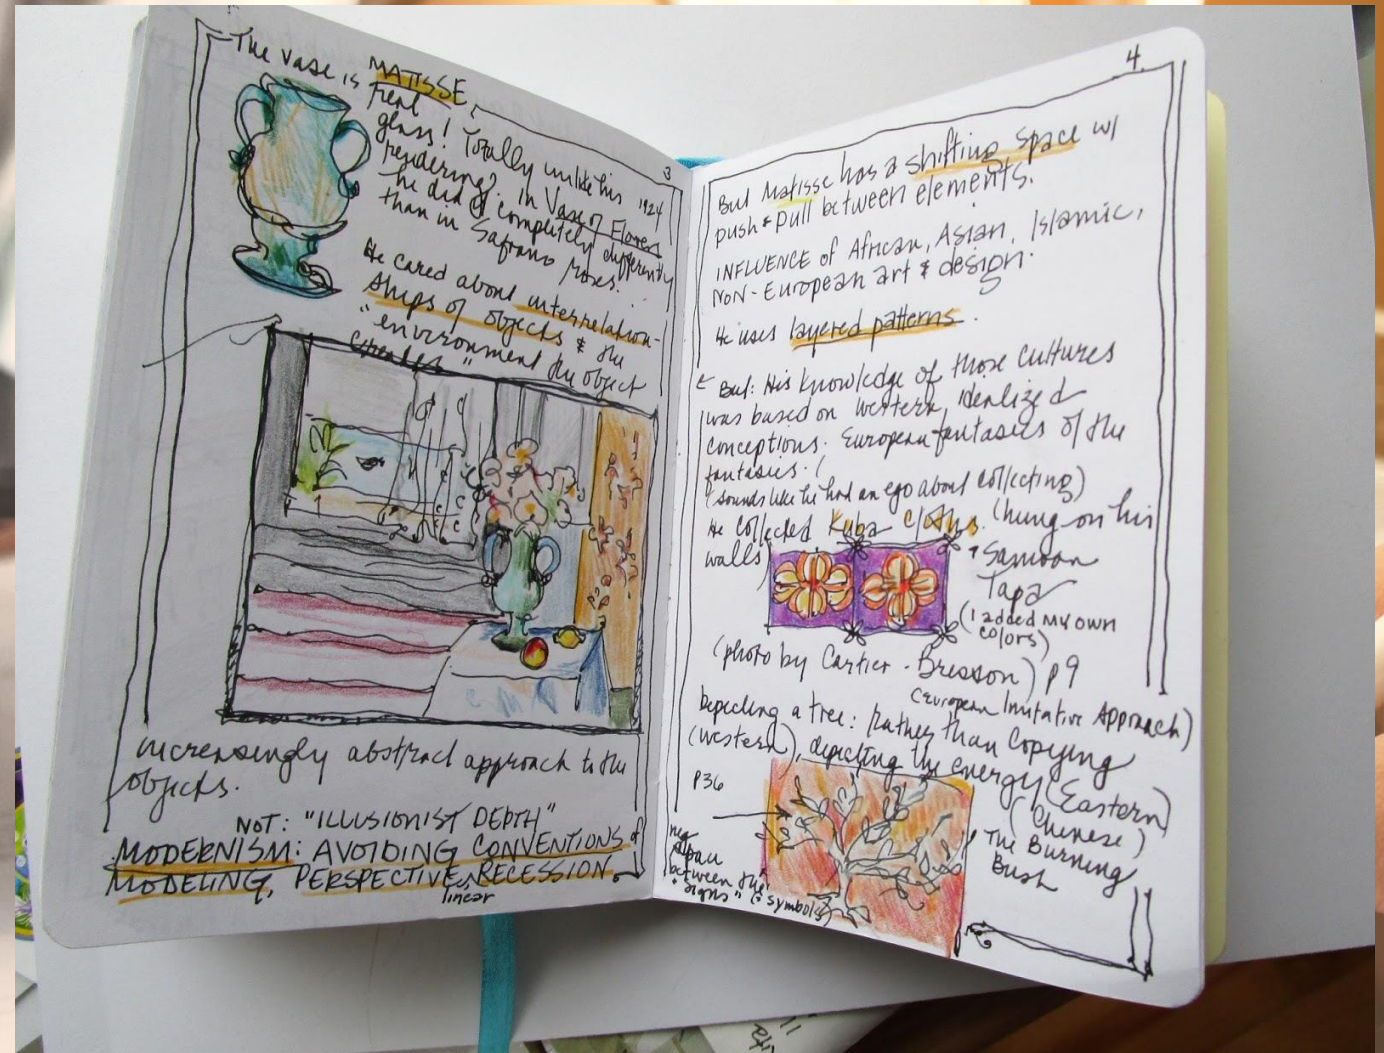 MATISSE,
3
The Vase is real
glass! Totally unlike his
rendering. In Vase of Flowers 1924
he did it completely differently
than in Safrano Roses.
He cared about interrelation-
ships of objects & the
"environment the object
creates"
increasingly abstract approach to the
objects.
NOT: "ILLUSIONIST DEPTH"
MODERNISM: AVOIDING CONVENTIONS of
MODELING, PERSPECTIVE, RECESSION.
linear
4.
But Matisse has a shifting space w/
push & pull between elements.
INFLUENCE of African, Asian, Islamic,
NON-European art & design.
He uses layered patterns.
But: His knowledge of those cultures
was based on western, idealized
conceptions. European fantasies of the
fantasies.
(sounds like he had an ego about collecting)
He collected Kuba cloths. (hung on his
walls)
Samoan
Tapa
(I added my own
colors)
(photo by Cartier-Bresson) p9
(European Imitative Approach)
Depicting a tree: Rather than copying
(western), depicting the energy (Eastern)
(Chinese)
P36
The Burning
Bush
neg
space
between the
"signs" (= symbols)